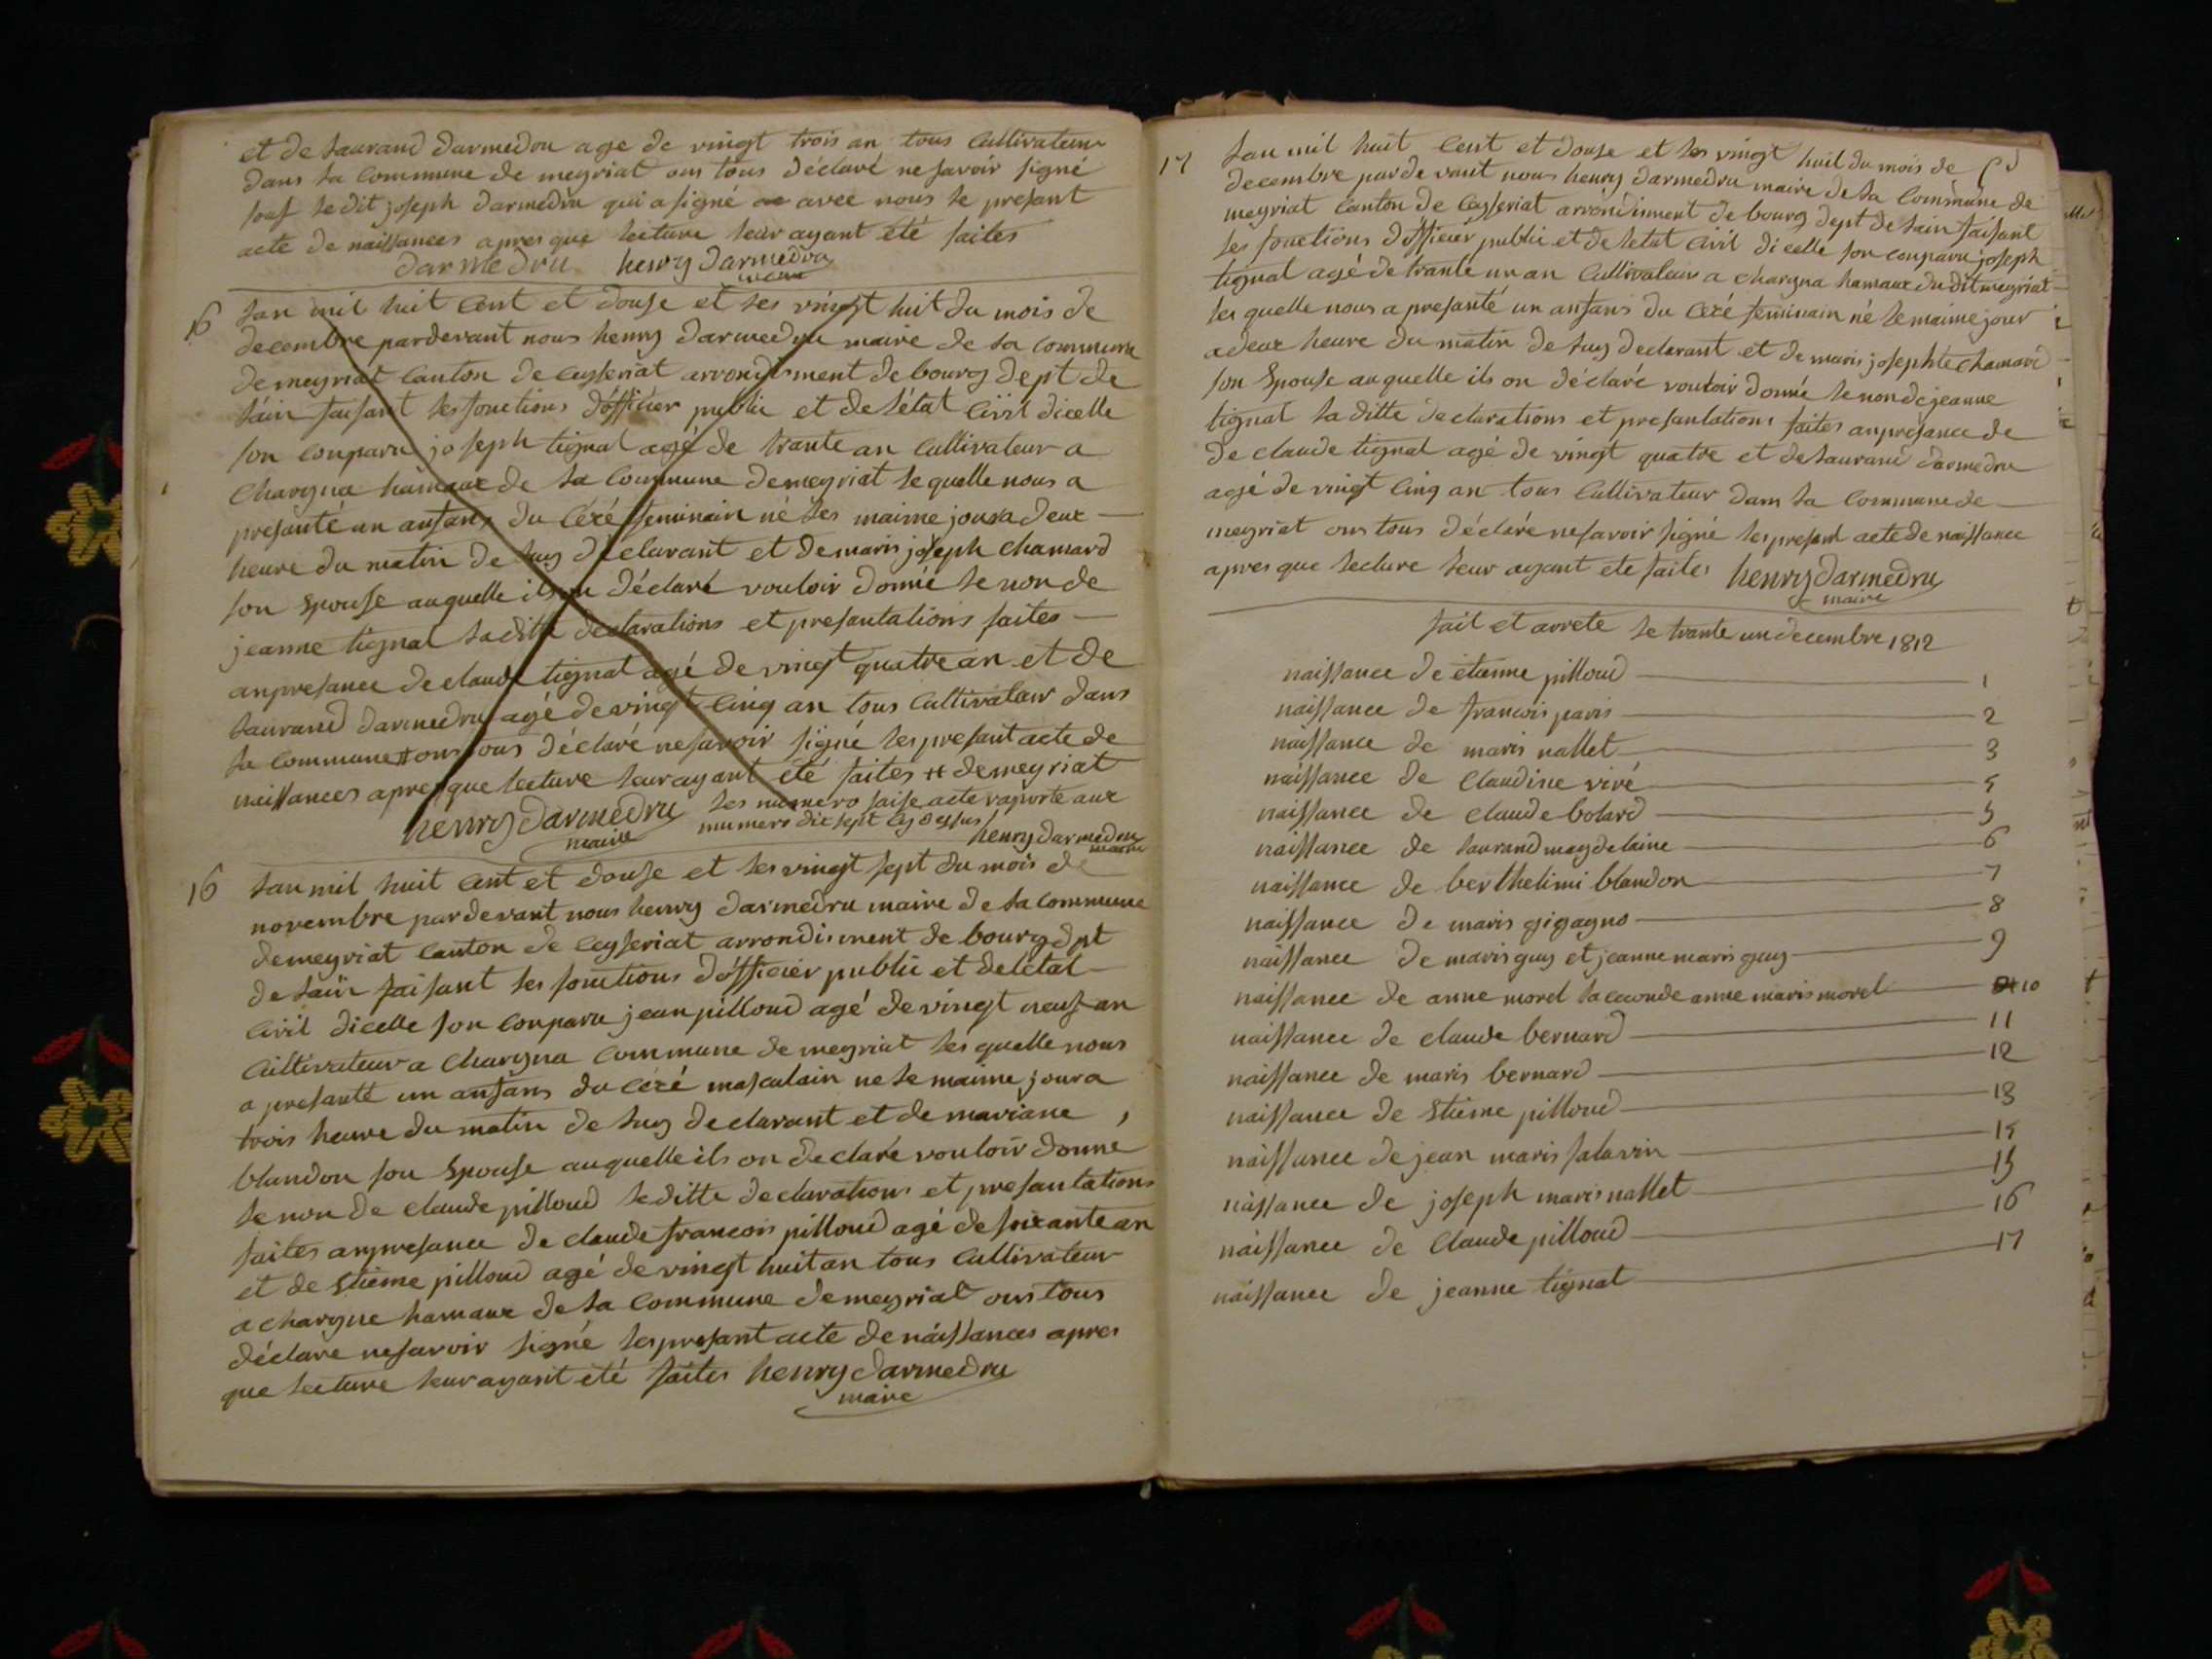 et de Laurand darmedru age de vingt trois an tous Cultivateur
dans La Commune de meyriat ons tous déclaré ne savoir signé
souf Le dit joseph darmedru qui a signé avec nous Le presant
acte de naissances apres que Lecture Leur ayant été faites
darmedru henry darmedru
maire
16 Lan mil huit Cent et douse et Les vingt huit du mois de
decembre pardevant nous henry darmedru maire de La commune
de meyriat Canton de Ceyseriat arrondisment de bourg dept de
Láin faisant Les fonctions dófficier public et de Létat Civil dicelle
son conparu joseph tignat agé de trante an Cultivateur a
Chargna hamaux de La Commune de meyriat Le quelle nous a
presanté un anfans du Céxé feminain né Les maime jour a deux
heure du matin de Luy déclarant et de maris joseph Chamard
son Epouse auquelle ils on déclaré vouloir donné Le non de
jeanne tignat La ditte declarations et presantations faites
anpresance de claude tignat agé de vingt quatre an et de
Laurand darmedru agé de vingt Cinq an tous Cultivateur dans
La Commune # ons tous déclaré ne savoir signé Les presant acte de
naissances apres que Lecture Leur ayant été faites # de meyriat
henry darmedru Les numero saise acte raporte aux
maire numero dix sept Cy dessus
henry darmedru
maire
16 Lan mil huit Cent et douse et Les vingt sept du mois de
novembre pardevant nous henry darmedru maire de La commune
de meyriat Canton de Ceyseriat arrondisment de bourg dpt
de Lain faisant Les fonctions dófficier public et de Létat
Civil dicelle son conparu jean pilloud agé de vingt neuf an
Cultivateur a Chargna Commune de meyriat Les quelle nous
a presanté un anfans du Céxé masculain ne Le maime jour a
trois heure du matin de Luy declarant et de mariane
blandon son Epouse auquelle ils on declaré vouloir donné
Le non de claude pilloud Le ditte declarations et presantations
faites anpresance de claude francois pilloud agé de soixante an
et de Etieme pilloud agé de vingt huit an tous Cultivateur
a chargne hamaux de La Commune de meyriat ons tous
déclare ne savoir signé Les presant acte de naissances apres
que Lecture Leur ayant été faites henry darmedru
maire
17 Lan mil huit Cent et douse et Les vingt huit du mois de
decembre par de vant nous henry darmedru maire de La Commune de
meyriat Canton de Ceyseriat arrondisment de bourg dept de Lain faisant
Les fonctions dófficier public et de Letat Civil dicelle son conparu joseph
tignat agé de trante un an Cultivateur a Chargna hamaux du dit meyriat
Les quelle nous a presanté un anfans du Céxé feminain né Le maime jour
a deux heure du matin de Luy declarant et de maris josephte Chamard
son Epouse auquelle ils on déclaré vouloir donné Le non de jeanne
tignat La ditte declarations et presantations faites anpresance de
de claude tignat agé de vingt quatre et de Laurand darmedru
agé de vingt Cinq an tous Cultivateur dans La Commune de
meyriat ons tous déclaré ne savoir signé Les presant acte de naissance
apres que Lecture Leur ayant ete faites henry darmedru
maire
fait et arrete Le trante un decembre 1812
naissance de étanne pilloud 1
naissance de francois paris 2
naissance de maris nallet 3
naissance de Claudine viré 4
naissance de claude bolard 5
naissance de Laurand magdelaine 6
naissance de berthelimi blandon 7
naissance de maris gigagno 8
naissance de maris guy et jeanne maris guy 9
naissance de anne morel La Ceconde anne maris morel 10
naissance de claude bernard 11
naissance de maris bernard 12
naissance de Etieme pilloud 13
naissance de jean maris salavin 14
naissance de joseph maris nallet 15
naissance de Claude pilloud 16
naissance de jeanne tignat 17